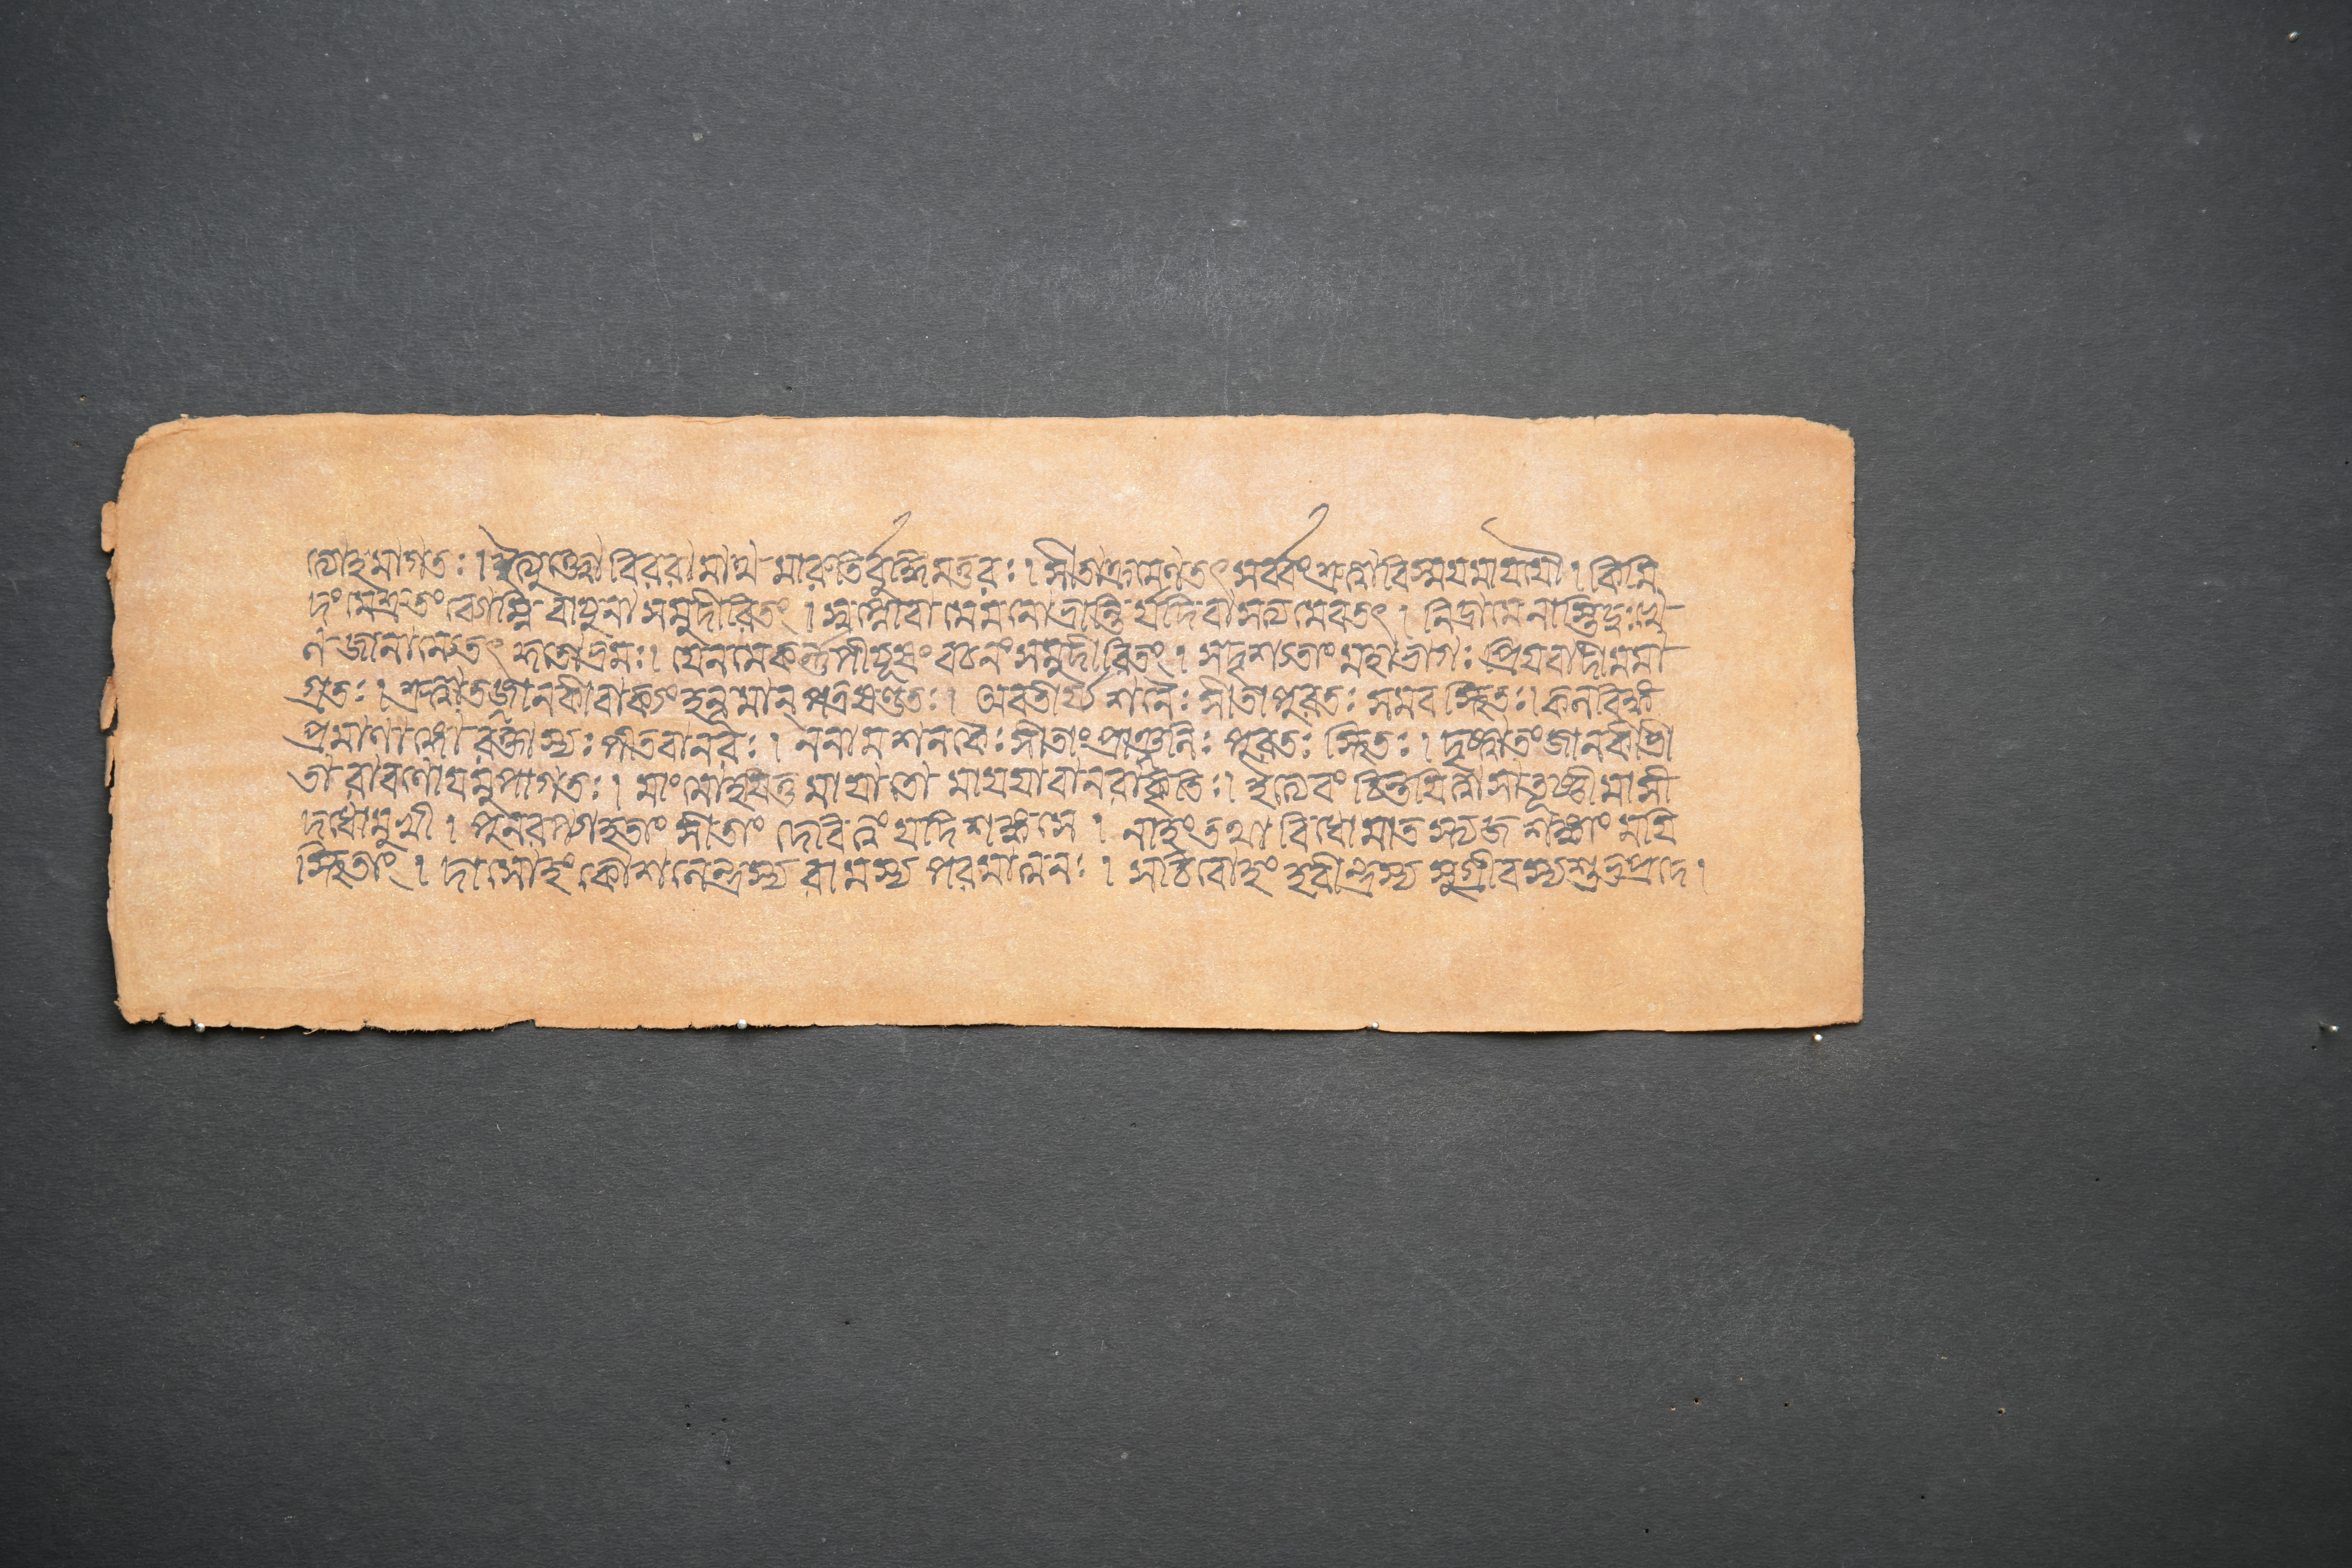 ত্যোহমাগতঃ। ইত্যুক্ত্বা বিররামাথ মারুতির্বুদ্ধিমত্তরঃ। সীতাক্রমেণতৎ সর্ব্বংশ্রুত্বাবিস্ময়মায়যৌ। কিমি
দং মেশ্রুতং বোম্নি বায়ুনা সমুদীরিতং। স্বপ্নোবা মেমনোভ্রান্তি র্যদি বা সত্যমেবতৎ। নিদ্রামে নাস্তিদুঃখে
ন জানামেতৎ কুতোভ্রমঃ। যেন মেকর্ণপীয়ূষং বচনং সমুদীরিতং। সদৃশ্যতাং মহাভাগঃ প্রিয়বাদী মমা
গ্রতঃ। শ্রুত্বাতজ্জানকীবাক্যং হনুমান্ পত্রষণ্ডতঃ। অবতীর্য শনৈঃ সীতা পুরতঃ সমবস্থিতঃ। কলবিঙ্ক
প্রমাণাঙ্গো রক্তাস্যঃ পীতবানরঃ। ননাম শনকৈঃ সীতাং প্রাঞ্জলিঃ পুরতঃ স্থিতঃ। দৃষ্ট্বাতং জানকীভী
তা রাবণোয়মুপাগতঃ। মাং মোহয়িতুমায়াতো মায়য়া বানরাকৃতিঃ। ইত্যেবং চিন্তয়িত্বা সাতূষ্ণীমাসী
দধোমুখী। পুনরপ্যাহতাং সীতাং দেবি ত্বং যদি শঙ্কসে। নাহং তথা বিধোমাত স্ত্যজ শঙ্কাং ময়ি
স্থিতাং। দাসোহং কোশলেন্দ্রস্য রামস্য পরমাত্মনঃ। সচিবোহং হরীন্দ্রস্য সুগ্রীবস্য শুভপ্রদে।